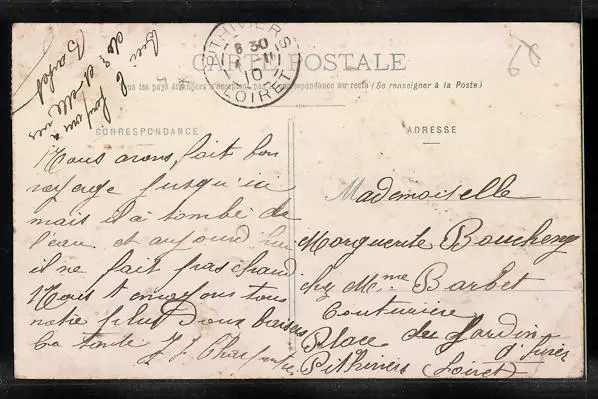 PITHIVIERS
8 30
11
10
LOIRET
CARTE POSTALE
Tous les pays étrangers n'acceptent pas la correspondance au recto (Se renseigner à la Poste)
CORRESPONDANCE
ADRESSE
Nous avons fait bon
voyage jusqu'ici
mais il a tombé de
l'eau et aujourd'hui
il ne fait pas chaud
Nous t envoyons tous
notre plus doux baisers
Ta tante J J
Mademoiselle
Marguerite Boucheny
chez Mme Barbet
Couturière
Place du Jardin
Pithiviers (Loiret)